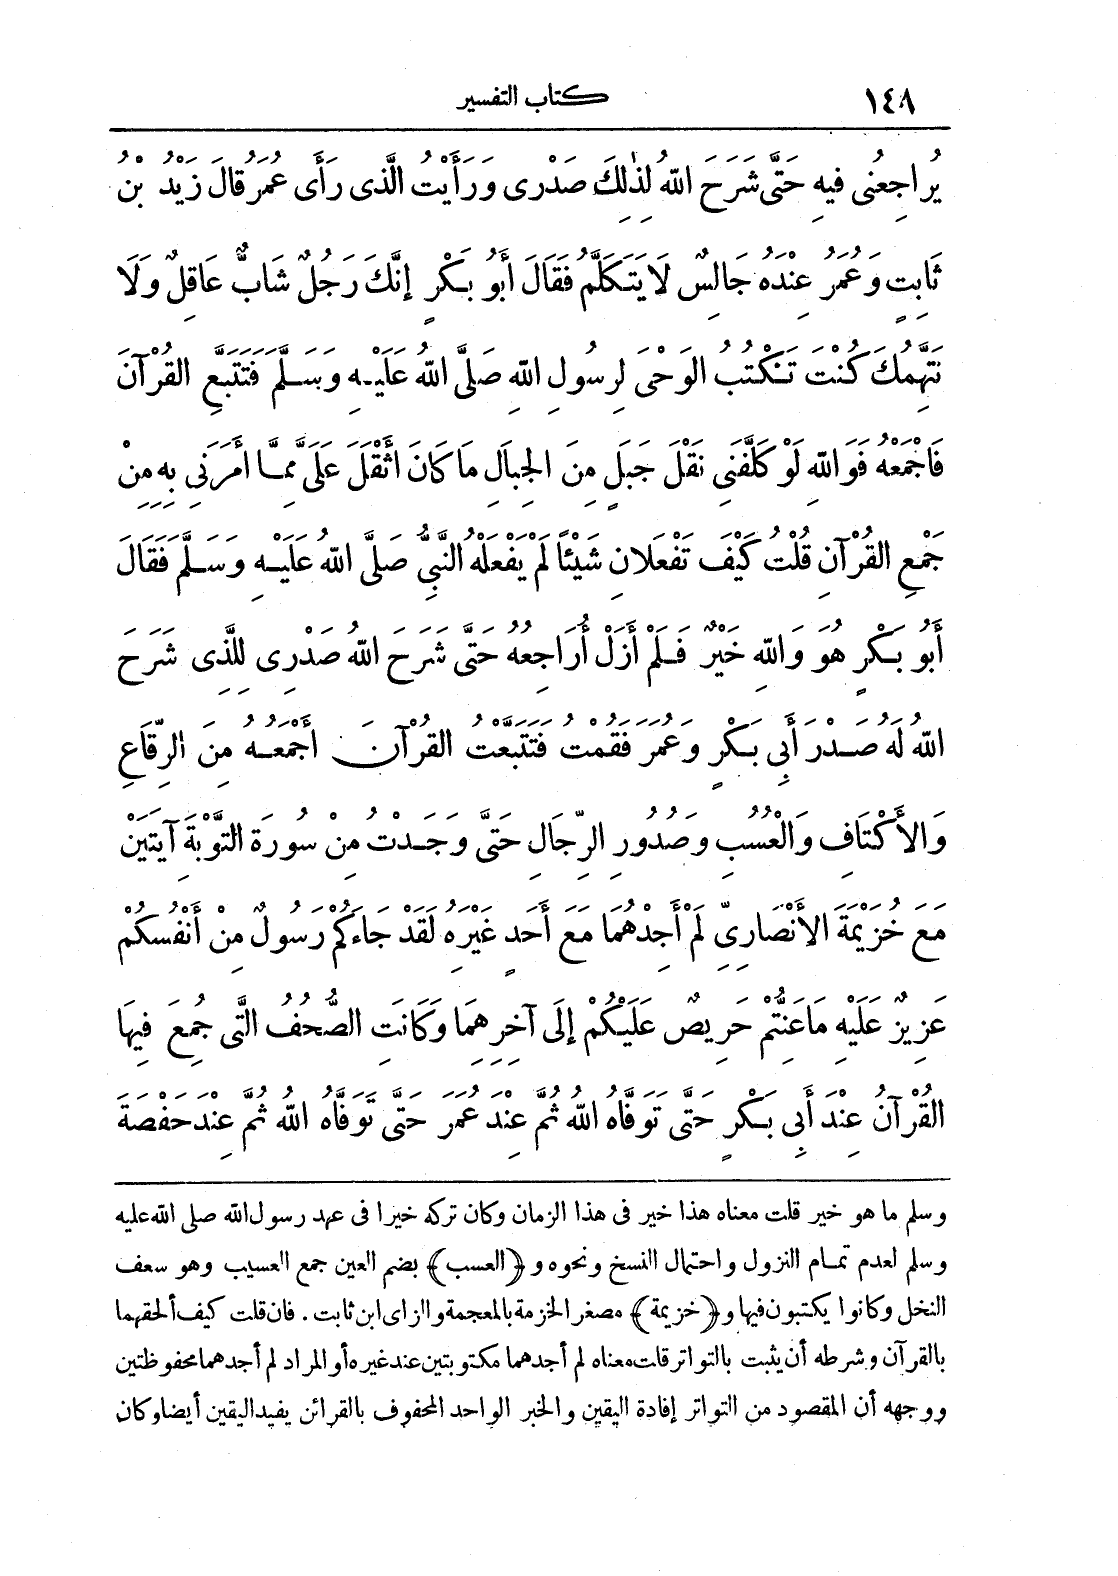 ١٤٨
كتاب التفسير
يُرَاجِعُنِى فِيهِ حَتَّى شَرَحَ اللهُ لِذٰلِكَ صَدْرِى وَرَأَيْتُ الَّذِى رَأَى عُمَرُ قَالَ زَيْدُ بْنُ
ثَابِتٍ وَعُمَرُ عِنْدَهُ جَالِسٌ لَا يَتَكَلَّمُ فَقَالَ أَبُو بَكْرٍ إِنَّكَ رَجُلٌ شَابٌّ عَاقِلٌ وَلَا
نَتَّهِمُكَ كُنْتَ تَكْتُبُ الوَحْىَ لِرَسُولِ اللهِ صَلَّى اللهُ عَلَيْهِ وَسَلَّمَ فَتَتَبَّعِ القُرْآنَ
فَاجْمَعْهُ فَوَاللهِ لَوْ كَلَّفَنِى نَقْلَ جَبَلٍ مِنَ الجِبَالِ مَا كَانَ أَثْقَلَ عَلَىَّ مِمَّا أَمَرَنِى بِهِ مِنْ
جَمْعِ القُرْآنِ قُلْتُ كَيْفَ تَفْعَلَانِ شَيْئًا لَمْ يَفْعَلْهُ النَّبِىُّ صَلَّى اللهُ عَلَيْهِ وَسَلَّمَ فَقَالَ
أَبُو بَكْرٍ هُوَ وَاللهِ خَيْرٌ فَلَمْ أَزَلْ أُرَاجِعُهُ حَتَّى شَرَحَ اللهُ صَدْرِى لِلَّذِى شَرَحَ
اللهُ لَهُ صَدْرَ أَبِى بَكْرٍ وَعُمَرَ فَقُمْتُ فَتَتَبَّعْتُ القُرْآنَ أَجْمَعُهُ مِنَ الرِّقَاعِ
وَالأَكْتَافِ وَالْعُسُبِ وَصُدُورِ الرِّجَالِ حَتَّى وَجَدْتُ مِنْ سُورَةِ التَّوْبَةِ آيَتَيْنِ
مَعَ خُزَيْمَةَ الأَنْصَارِىِّ لَمْ أَجِدْهُمَا مَعَ أَحَدٍ غَيْرِهِ لَقَدْ جَاءَكُمْ رَسُولٌ مِنْ أَنْفُسِكُمْ
عَزِيزٌ عَلَيْهِ مَا عَنِتُّمْ حَرِيصٌ عَلَيْكُمْ إِلَى آخِرِهِمَا وَكَانَتِ الصُّحُفُ الَّتِى جُمِعَ فِيهَا
القُرْآنُ عِنْدَ أَبِى بَكْرٍ حَتَّى تَوَفَّاهُ اللهُ ثُمَّ عِنْدَ عُمَرَ حَتَّى تَوَفَّاهُ اللهُ ثُمَّ عِنْدَ حَفْصَةَ
وسلم ما هو خير قلت معناه هذا خير فى هذا الزمان وكان تركه خيرا فى عهد رسول الله صلى الله عليه
وسلم لعدم تمام النزول واحتمال النسخ ونحوه و ﴿العسب﴾ بضم العين جمع العسيب وهو سعف
النخل وكانوا يكتبون فيها و ﴿خزيمة﴾ مصغر الخزمة بالمعجمة والزاى ابن ثابت. فان قلت كيف ألحقهما
بالقرآن وشرطه أن يثبت بالتواتر قلت معناه لم أجدهما مكتوبتين عند غيره أو المراد لم أجدهما محفوظتين
ووجهه أن المقصود من التواتر إفادة اليقين والخبر الواحد المحفوف بالقرائن يفيد اليقين أيضا وكان